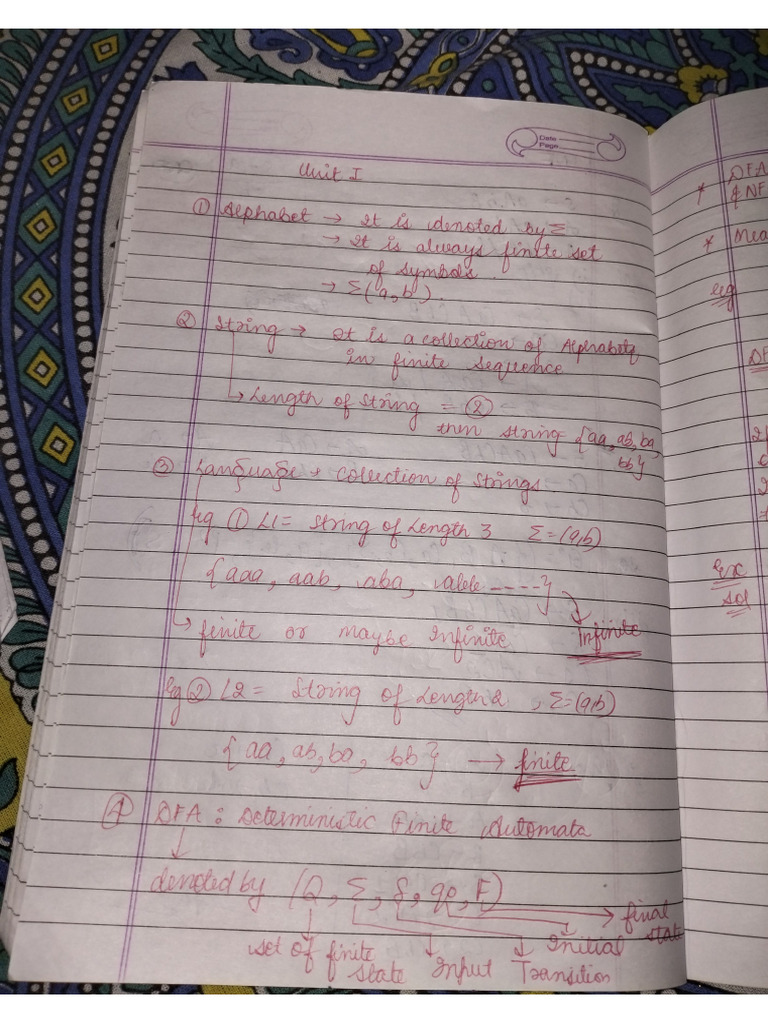 Date
Page
Unit I
① Alphabet → It is denoted by Σ
→ It is always finite set
of symbols.
→ Σ(a,b).
② String → It is a collection of Alphabets
in finite sequence
↳ Length of string = ②
then string {aa, ab, ba,
bb}
③ Language → Collection of strings.
eg ① L1 = string of length 3 Σ=(a,b)
{aaa, aab, aba, abb ----}
↳ finite or maybe Infinite Infinite
Eg ② L2 = String of Length 2, Σ=(a,b)
{aa, ab, ba, bb} → finite
④ DFA : Deterministic Finite Automata
↓
denoted by (Q, Σ, δ, q0, F)
→ final
state
Initial
set of finite
state Input Transition
DFA
* & NF
* Mea
eg
DF
Ex
Sol